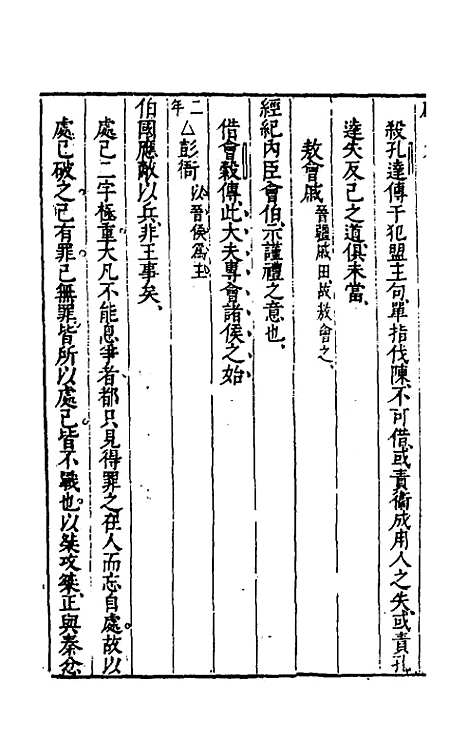 殺孔達傳于犯盟主句單指伐陳不可借或責衞成用人之失或責孔
達失反己之道俱未當
敖會戚 晉疆戚田故敖會之
經紀內臣會伯示謹禮之意也
借會穀傳此大夫專會諸侯之始
二年 △彭衙 以晉侯為主
伯國應敵以兵非王事矣
處己二字極重大凡不能息爭者都只見得罪之在人而忘自處故以
處己破之己有罪己無罪皆所以處己皆不戰也以桀攻桀正與秦忿